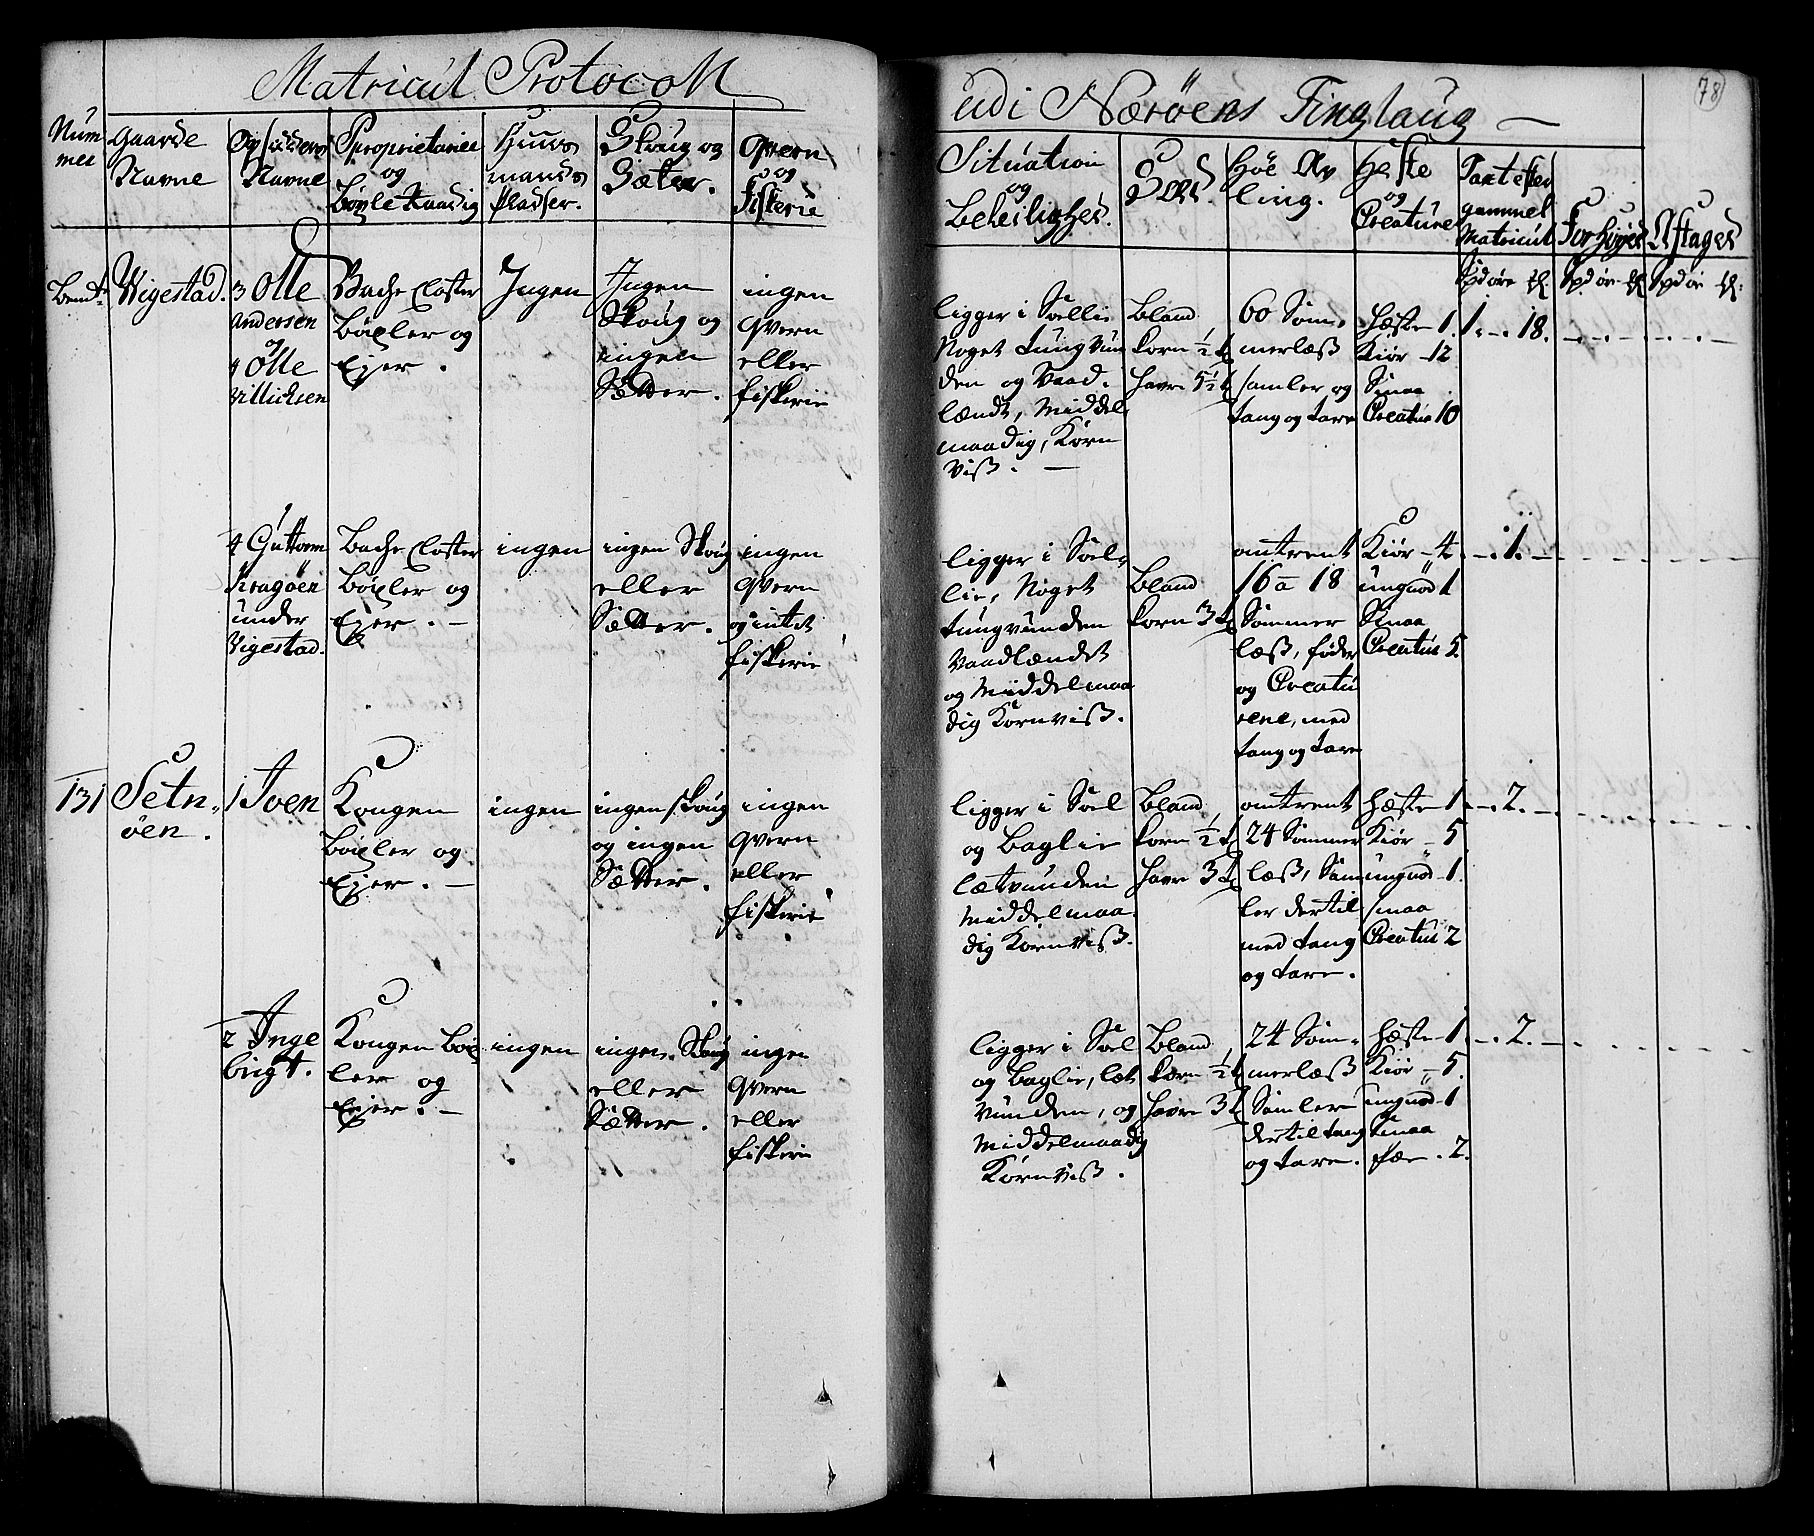 Matricul Protocoll
udi Nærøens Tinglaug
78
Num
mer
Gaarde
Navne
Opsidderes
Navne
Proprietarier
og
Böxle Raadig
Huus
mands
Pladser.
Skoug og
Sæter.
Qvern
og
Fiskerie
Situation
og
Beleilighed.
Sæd.
Höe Av
ling.
Heste
og
Creature
Taxt efter
gammel
Matricul
Forhöjes
Aftages
Spd öre
Spd ör
Spd ör
Wigestad.
3 Olle
Andersen
og
4 Olle
Bache Closter
Böxler og
Ejer.
Ingen
Ingen
Skoug og
ingen
Sætter.
ingen
qvern
eller
fiskerie
ligger i Soellie
Noget Tungvun
den og Vaad-
lændt, Middel
maadig, Korn
viß.
Bland
korn ½ t
Havre 5½ t
60 Som-
merlæß
samler og
tang og tare
Hæste 1
Kiör - 12
Smaa
Creatur 10
1. - 18.
4 Guttorm
Kragöen
under
Vigestad.
Bache Closter
Böxler og
Ejer.
ingen
ingen Skoug
eller
Sætter.
ingen
qvern
og intet
fiskerie
ligger i Soel-
lie, Noget
tungvunden
Vaadlændet
og Middelmaa
dig Kornviß.
Bland
korn 3 t
omtrent
16 a 18
Sommer
læß, föder
og Creatu
rene, med
tang og tare
Kiör - 4
ungnöd 1
Smaa
Creatur 5.
- 1. -
131
Setn-
öen.
1 Joen
Kongen
Böxler og
Ejer.
ingen
ingen skoug
og ingen
Sætter.
ingen
qvern
eller
fiskerie
ligger i Soel
og Baglie
lætvunden
Middelmaa
dig Kornviß.
Bland
korn ½ t
Havre 3 t
omtrent
24 Sommer
læß, Sam
ler dertil
med tang
og tare.
Hæste 1
Kiör - 5
ungnöd - 1.
smaa
Creatur 2
- 2. -
2 Inge
brigt.
Kongen Böx
ler og
Ejer.
ingen
ingen Skoug
eller
Sætter.
ingen
qvern
eller
fiskerie
ligger i Soel
og Baglie, læt
vunden, og
Middelmaadig
Kornviß.
Bland
korn ½ t
Havre 3 t
24 Som-
merlæß
Samler
dertil tang
og tare.
Hæste 1
Kiör - 5.
ungnöd 1
Smaa
fæe. 2.
- 2. -